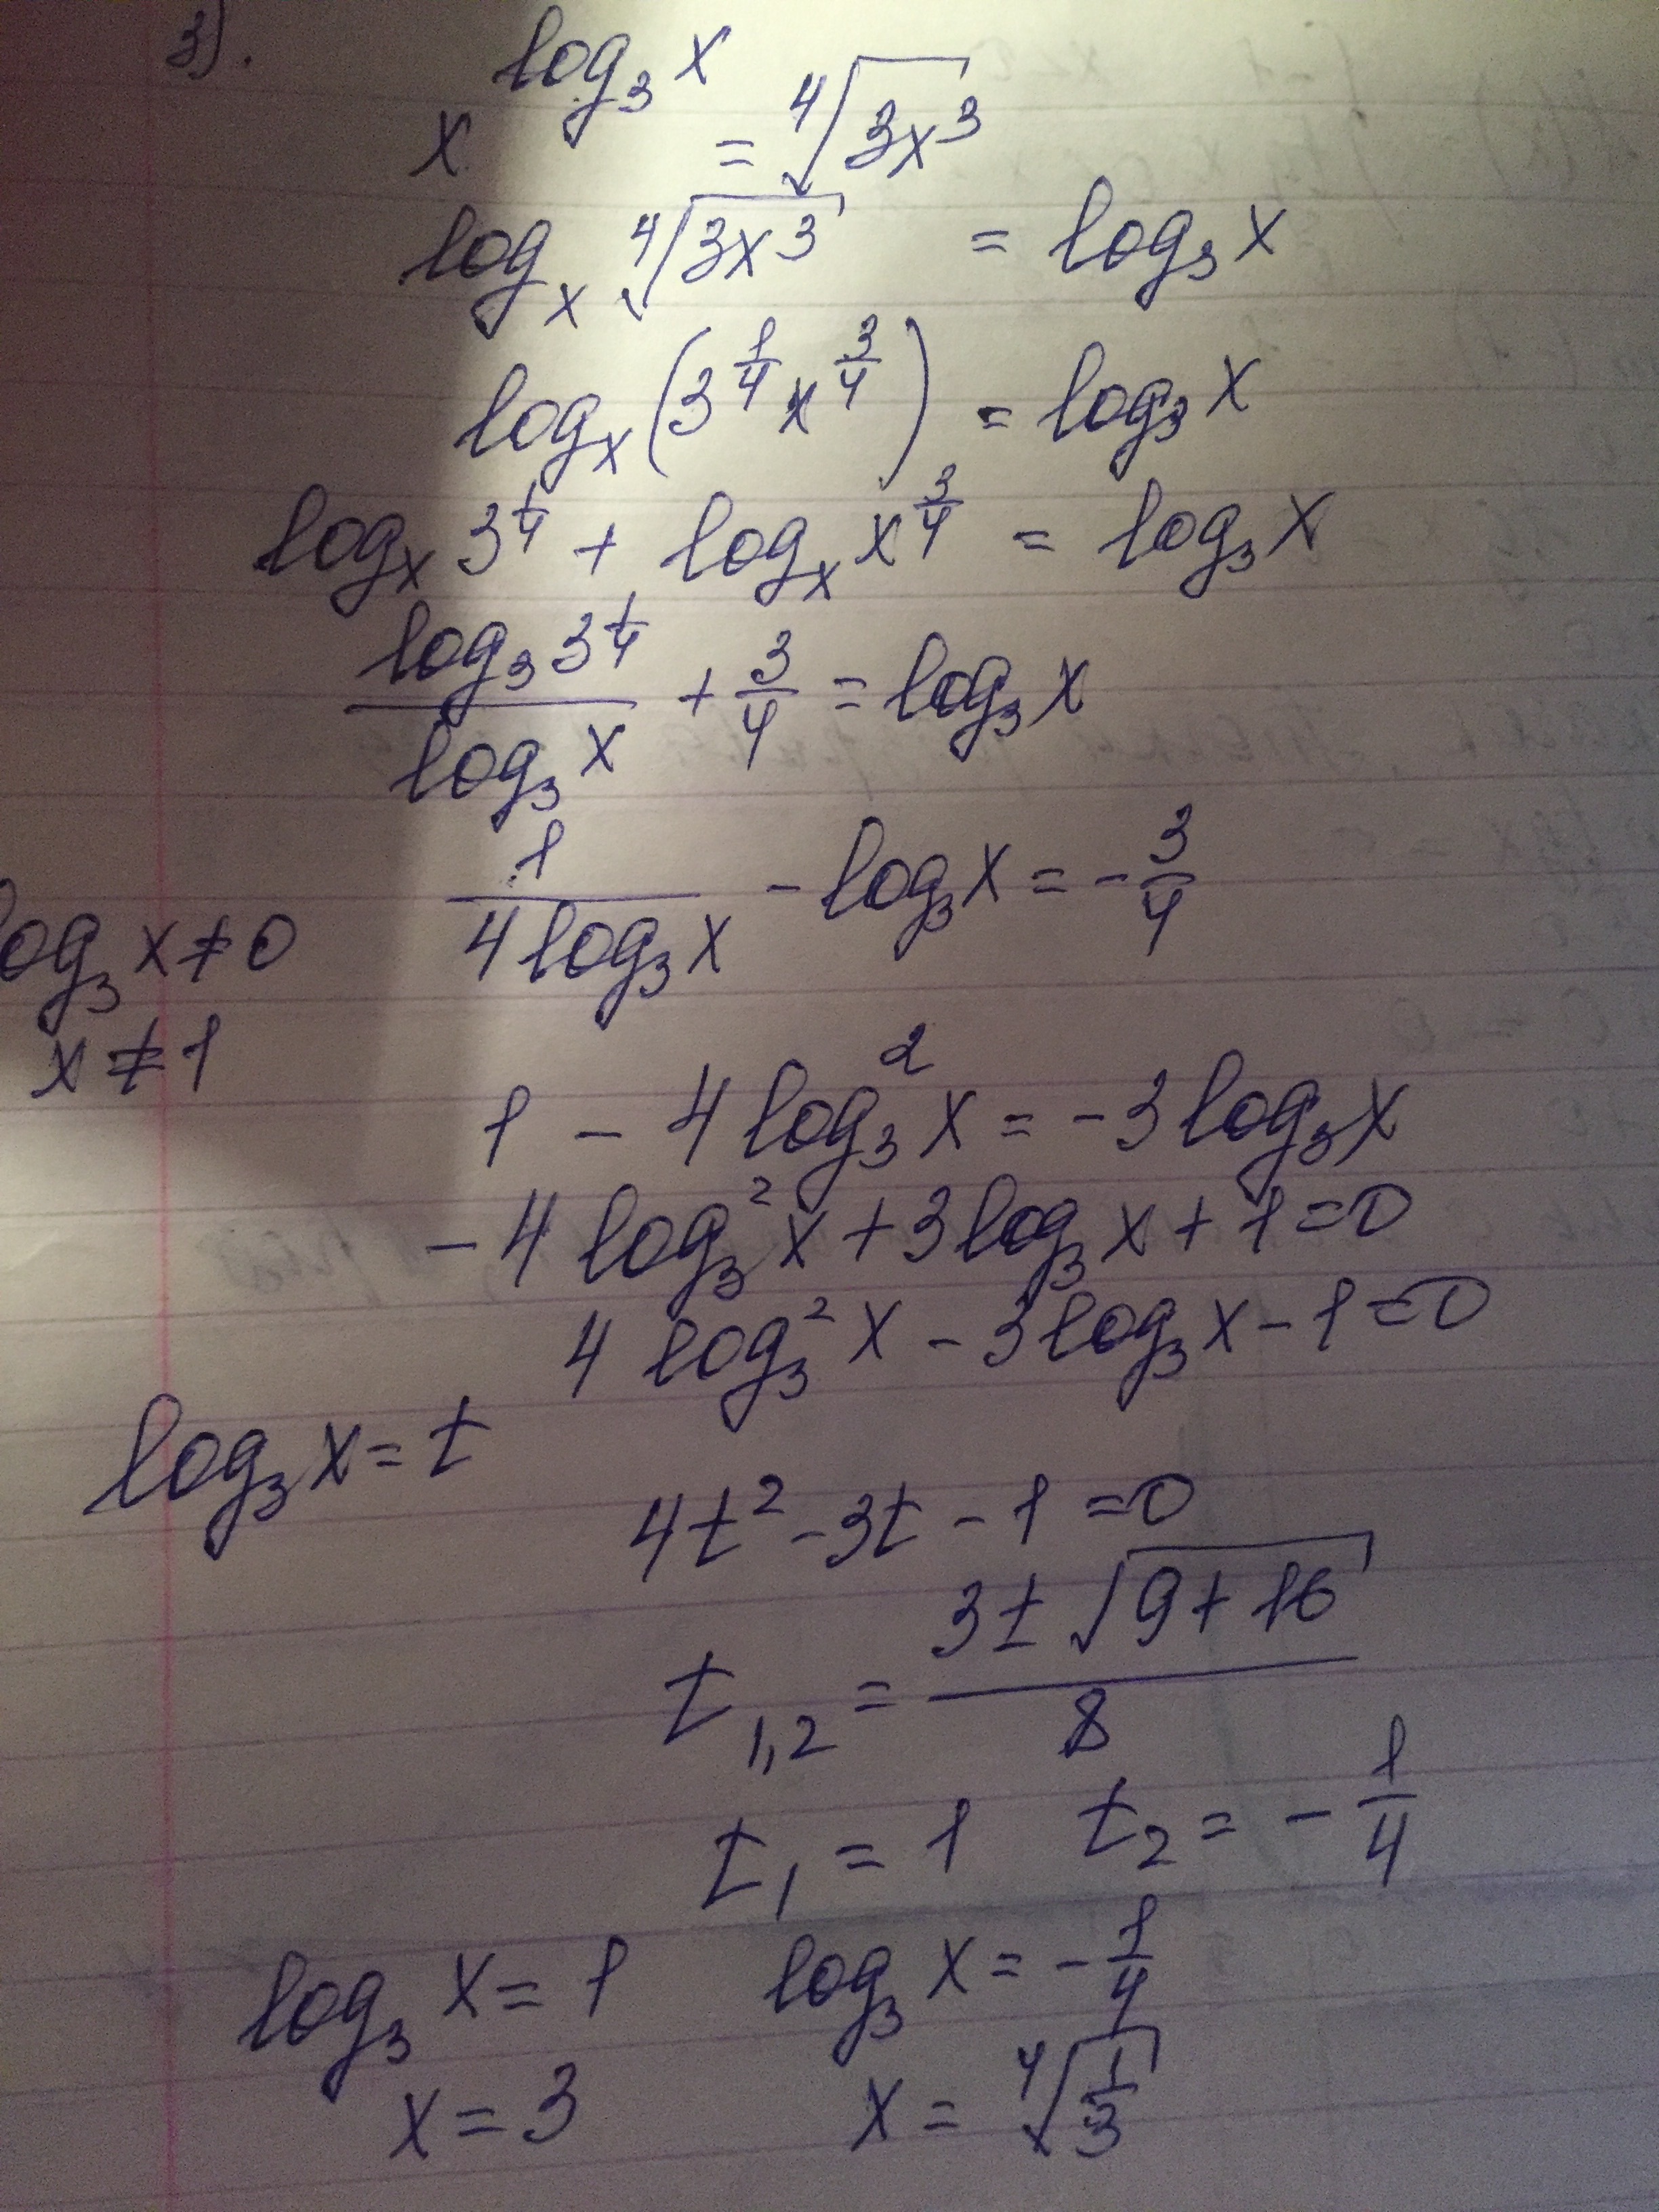 3).
x^{log_3 x} = ∜(3x^3)
log_x ∜(3x^3) = log_3 x
log_x (3^{1/4} x^{3/4}) = log_3 x
log_x 3^{1/4} + log_x x^{3/4} = log_3 x
(log_3 3^{1/4})/(log_3 x) + 3/4 = log_3 x
1/(4 log_3 x) - log_3 x = -3/4
log_3 x ≠ 0
x ≠ 1
1 - 4 log_3^2 x = -3 log_3 x
-4 log_3^2 x + 3 log_3 x + 1 = 0
4 log_3^2 x - 3 log_3 x - 1 = 0
log_3 x = t
4t^2 - 3t - 1 = 0
t_{1,2} = (3 ± √(9 + 16))/8
t_1 = 1 t_2 = -1/4
log_3 x = 1 log_3 x = -1/4
x = 3 x = ∜(1/3)